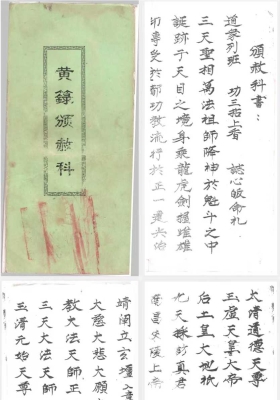 黃籙頒赦科
頒赦科書：
道眾列班　功三招上香　誠心皈命礼
三天聖相萬法祖師降神於魁斗之中
誕跡于天目之境身乘龍虎劍握雌雄
印專 於都功教流行於正一
靖闡立玄壇
大慈大悲大願
教大法天師正
三天大法天師
玉清元始天尊
太清道德天尊
玉皇天皇大帝
后土皇大地祇
九天採訪真君